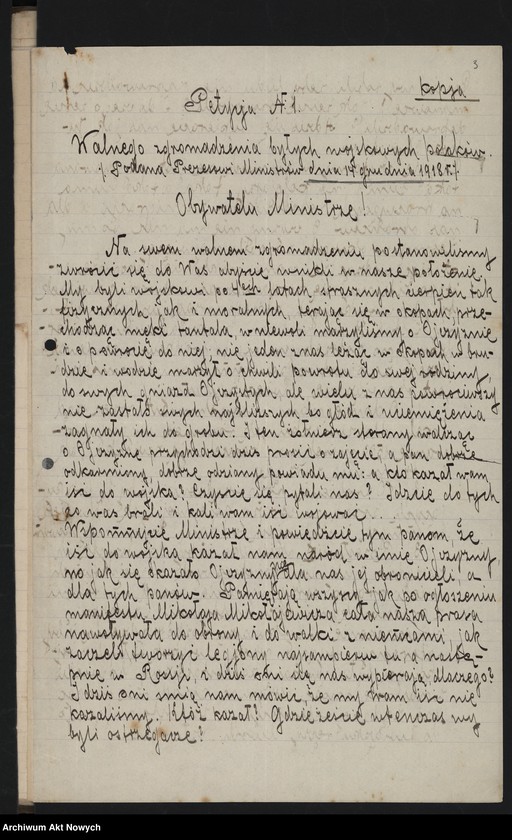 3
kopja
Petycja № 1.
Walnego zgromadzenia byłych wojskowych polaków.
/ Podana Prezesowi Ministrów dnia 14 grudnia 1918 r./.
Obywatelu Ministrze!
Na swem walnem zgromadzeniu postanowiliśmy
zwrócić się do Was abyście wnikli w nasze położenie
My byli wojskowi po 4ech latach strasznych cierpień tak
fizycznych jak i moralnych, terając się w okopach prze-
chodząc męki tantala, w niewoli marzyliśmy o Ojczyźnie
i o powrocie do niej, nie jeden z nas leżąc w okopach w bru-
dzie i wodzie marzył o chwili powrotu do swej rodziny,
do swych gniazd Ojczystych, ale wielu z nas powróciwszy
nie zastało swych najbliższych bo głód i ciemiężenia
zagnały ich do grobu! I ten żołnierz sterany walcząc
o Ojczyznę przychodzi dziś prosić o zajęcie, a pan dobrze
odkarmiony, dobrze odziany powiada mu: a kto kazał wam
iść do wojska? Czyście się pytali nas? Idźcie do tych
co was brali i kali wam iść wojować...
Wspomnijcie Ministrze i powiedzcie tym panom, że
iść do wojska kazał nam naród w imię Ojczyzny,
no jak się okazało Ojczyznę dla nas jej obronicieli, a
dla tych panów. Pamiętają wszyscy jak po ogłoszeniu
manifestu Mikołaja Mikołajewicza cała nasza prasa
nawoływała do obrony i do walki z niemcami, jak
zaczęli tworzyć legjony najsampierw tu, a nastę-
pnie w Rosji, i dziś oni się nas wypierają dlaczego?
I dziś oni śmią nam mówić, że my wam iść nie
kazaliśmy. Któż kazał? Gdzieżeście wtenczas wy
byli ostrzegacze?
Archiwum Akt Nowych